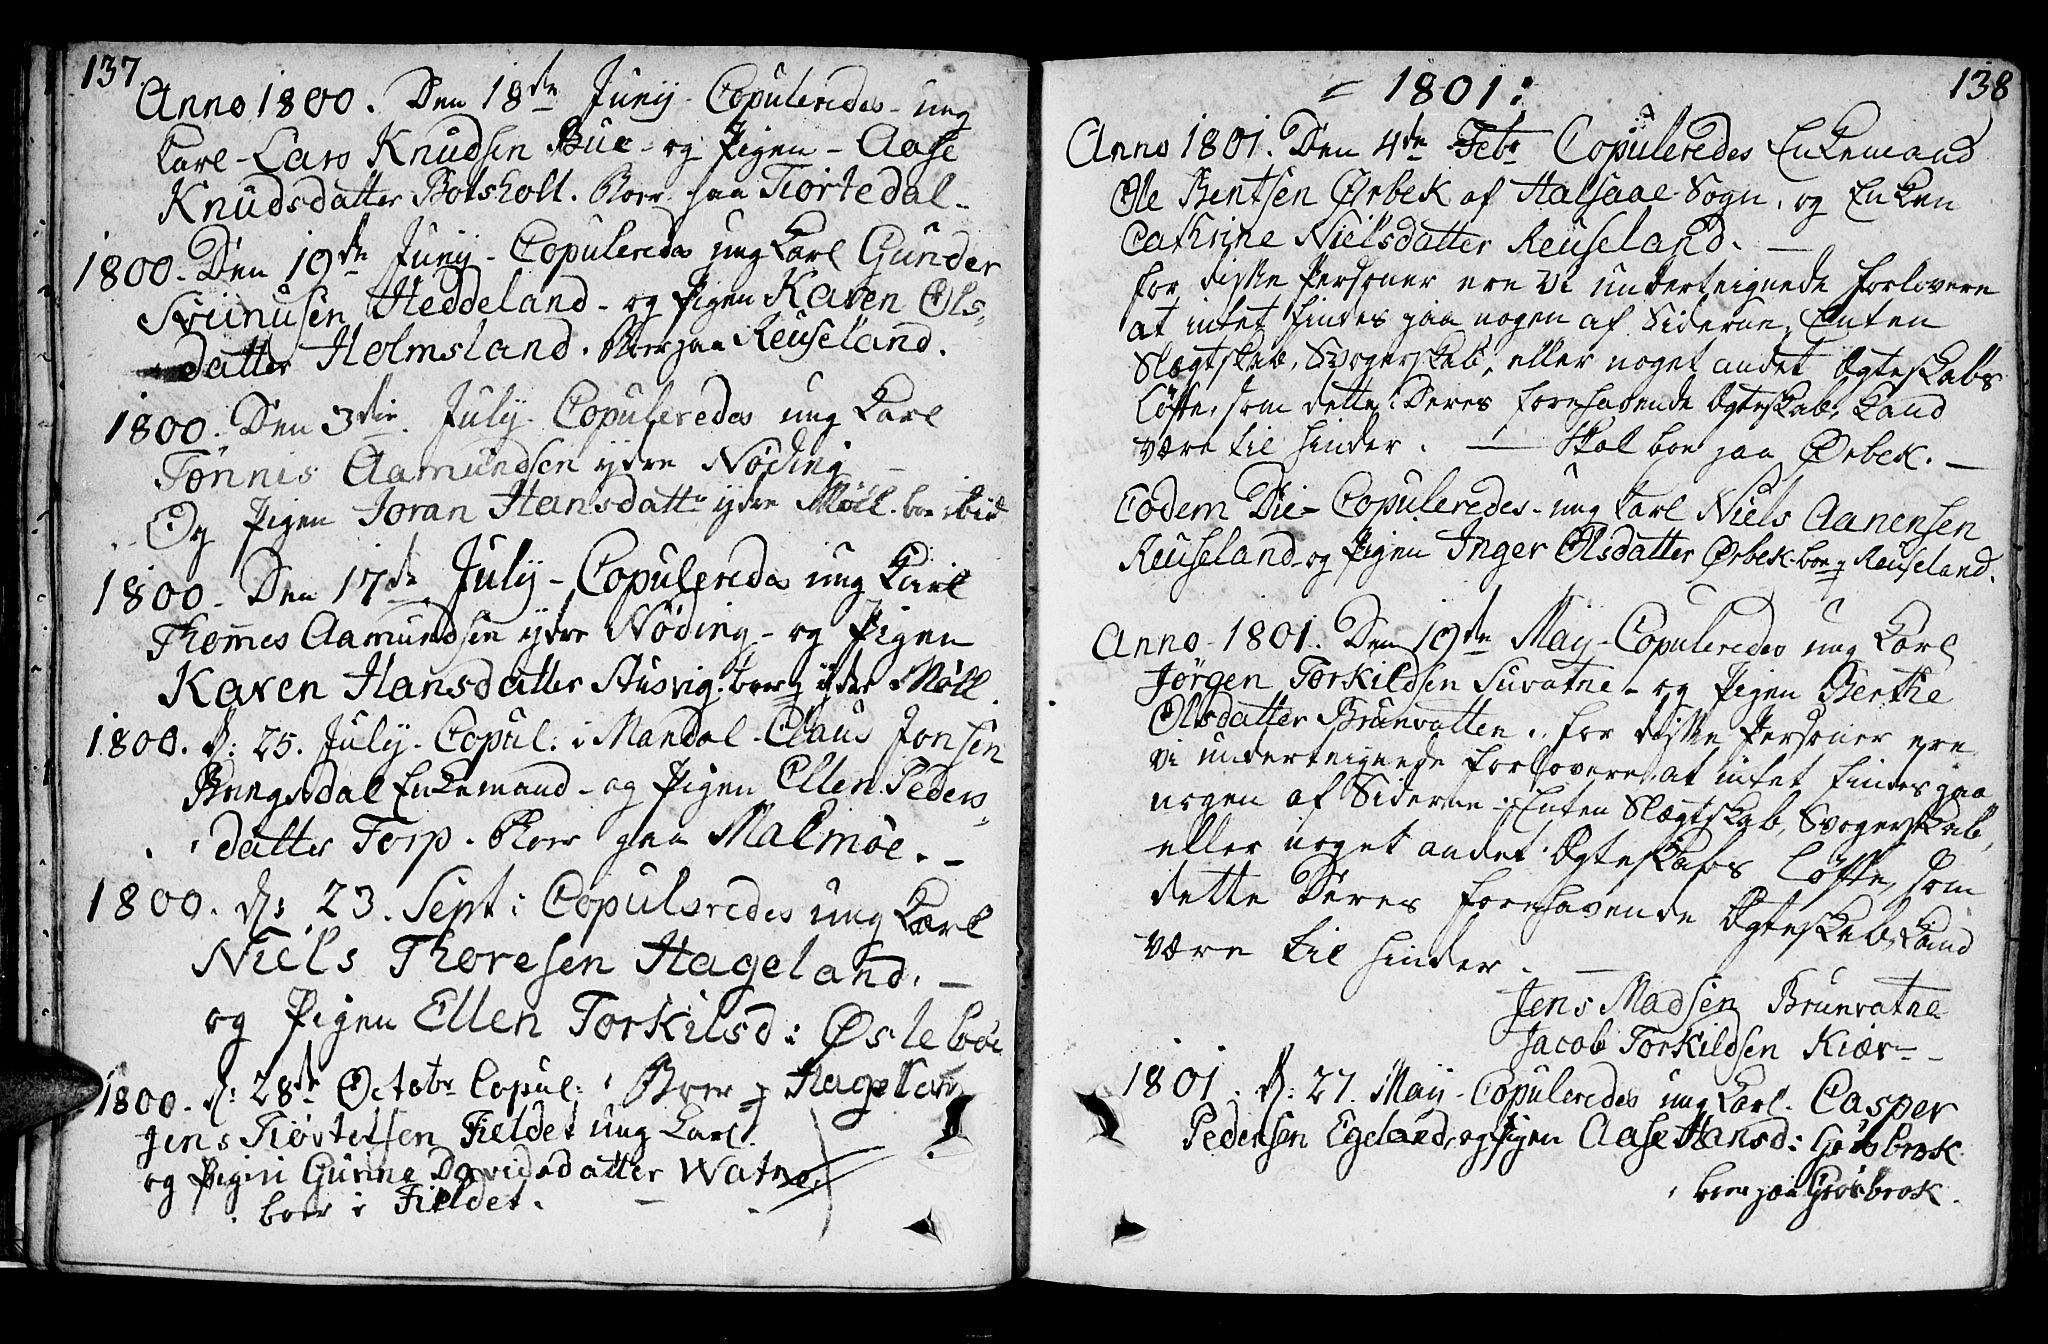 137.
Anno 1800. Den 18de Junÿ - Copuleredes - ung
Karl - Lars Knudsen Bue - og Pigen - Aase
Knudsdatter Botsholt. Boer paa Tiortedal -
1800. Den 19de Junÿ - Copuleredes ung Karl Gunder
Sviinusen Heddeland - og Pigen Karen Ols-
datter Holmsland. Boer paa Reuseland.
1800. Den 3die July Copuleredes ung Karl
Tønnis Aamundsen ÿdre Nöding -
Og Pigen Joran Hansdattr ÿdre Møll. boe ibid
1800. Den 17de July - Copuleredes ung Karl
Thomes Aamundsen ÿdre Nöding - og Pigen
Karen Hansdatter Ausvig. boer p ÿdre Møll.
1800. D: 25. July - Copul: i Mandal - Claus Jonsen
Bringsdal Enkemand - og Pigen Ellen Peders-
datter Torp. Boer paa Malmöe. -
1800. d: 23. Sept: Copuleredes ung Karl
Niels Thoresen Hageland. -
og Pigen Ellen Torkilsd: Øsleböe
Boer p Hageland
1800. d: 28de Octobr Copul:
Jens Tiøstelsen Fieldet ung Karl.
og Pigen Gurine Davidsdatter Watne
boer i Fieldet.
138
= 1801:
Anno 1801. Den 4de Febr Copuleredes Enkemand
Ole Bentsen Ørbek af Halsaae Sogn, og Enken
Cathrine Nielsdatter Reuseland. -
for diske Personer ere Vi underteignede forlovere
at intet findes paa nogen af Siderne, Enten
Slægtskab, Svogerskab, eller noget andet Ægteskabs
Løfte, som dette Deres forehavende Ægteskab, Kand
være til hinder. - Skal boe paa Ørbek. -
Eodem Die - Copuleredes - ung Karl Niels Aanensen
Reuseland - og Pigen Inger Olsdatter Ørbek - boe p Reuseland.
Anno - 1801. Den 19de May - Copuleredes ung Karl
Jørgen Torkildsen Suvatne - og Pigen Berthe
Olsdatter Brunvatten. for diske Personer ere
vi underteignede forlovere, at intet findes paa
nogen af Siderne - Enten Slægtskab, Svogerskab,
eller noget andet Ægteskabs Løfte, som
dette Deres forehavende Ægteskab, Kand
være til hinder. -
Jens Madsen Brunvatne
Jacob Torkildsen Kiær -
1801. D: 27. Maÿ - Copuleredes ung Karl. Casper
Pedersen Egeland, og Pigen Aase Hansd: Grøsbrok
boer paa Grøsbrok.